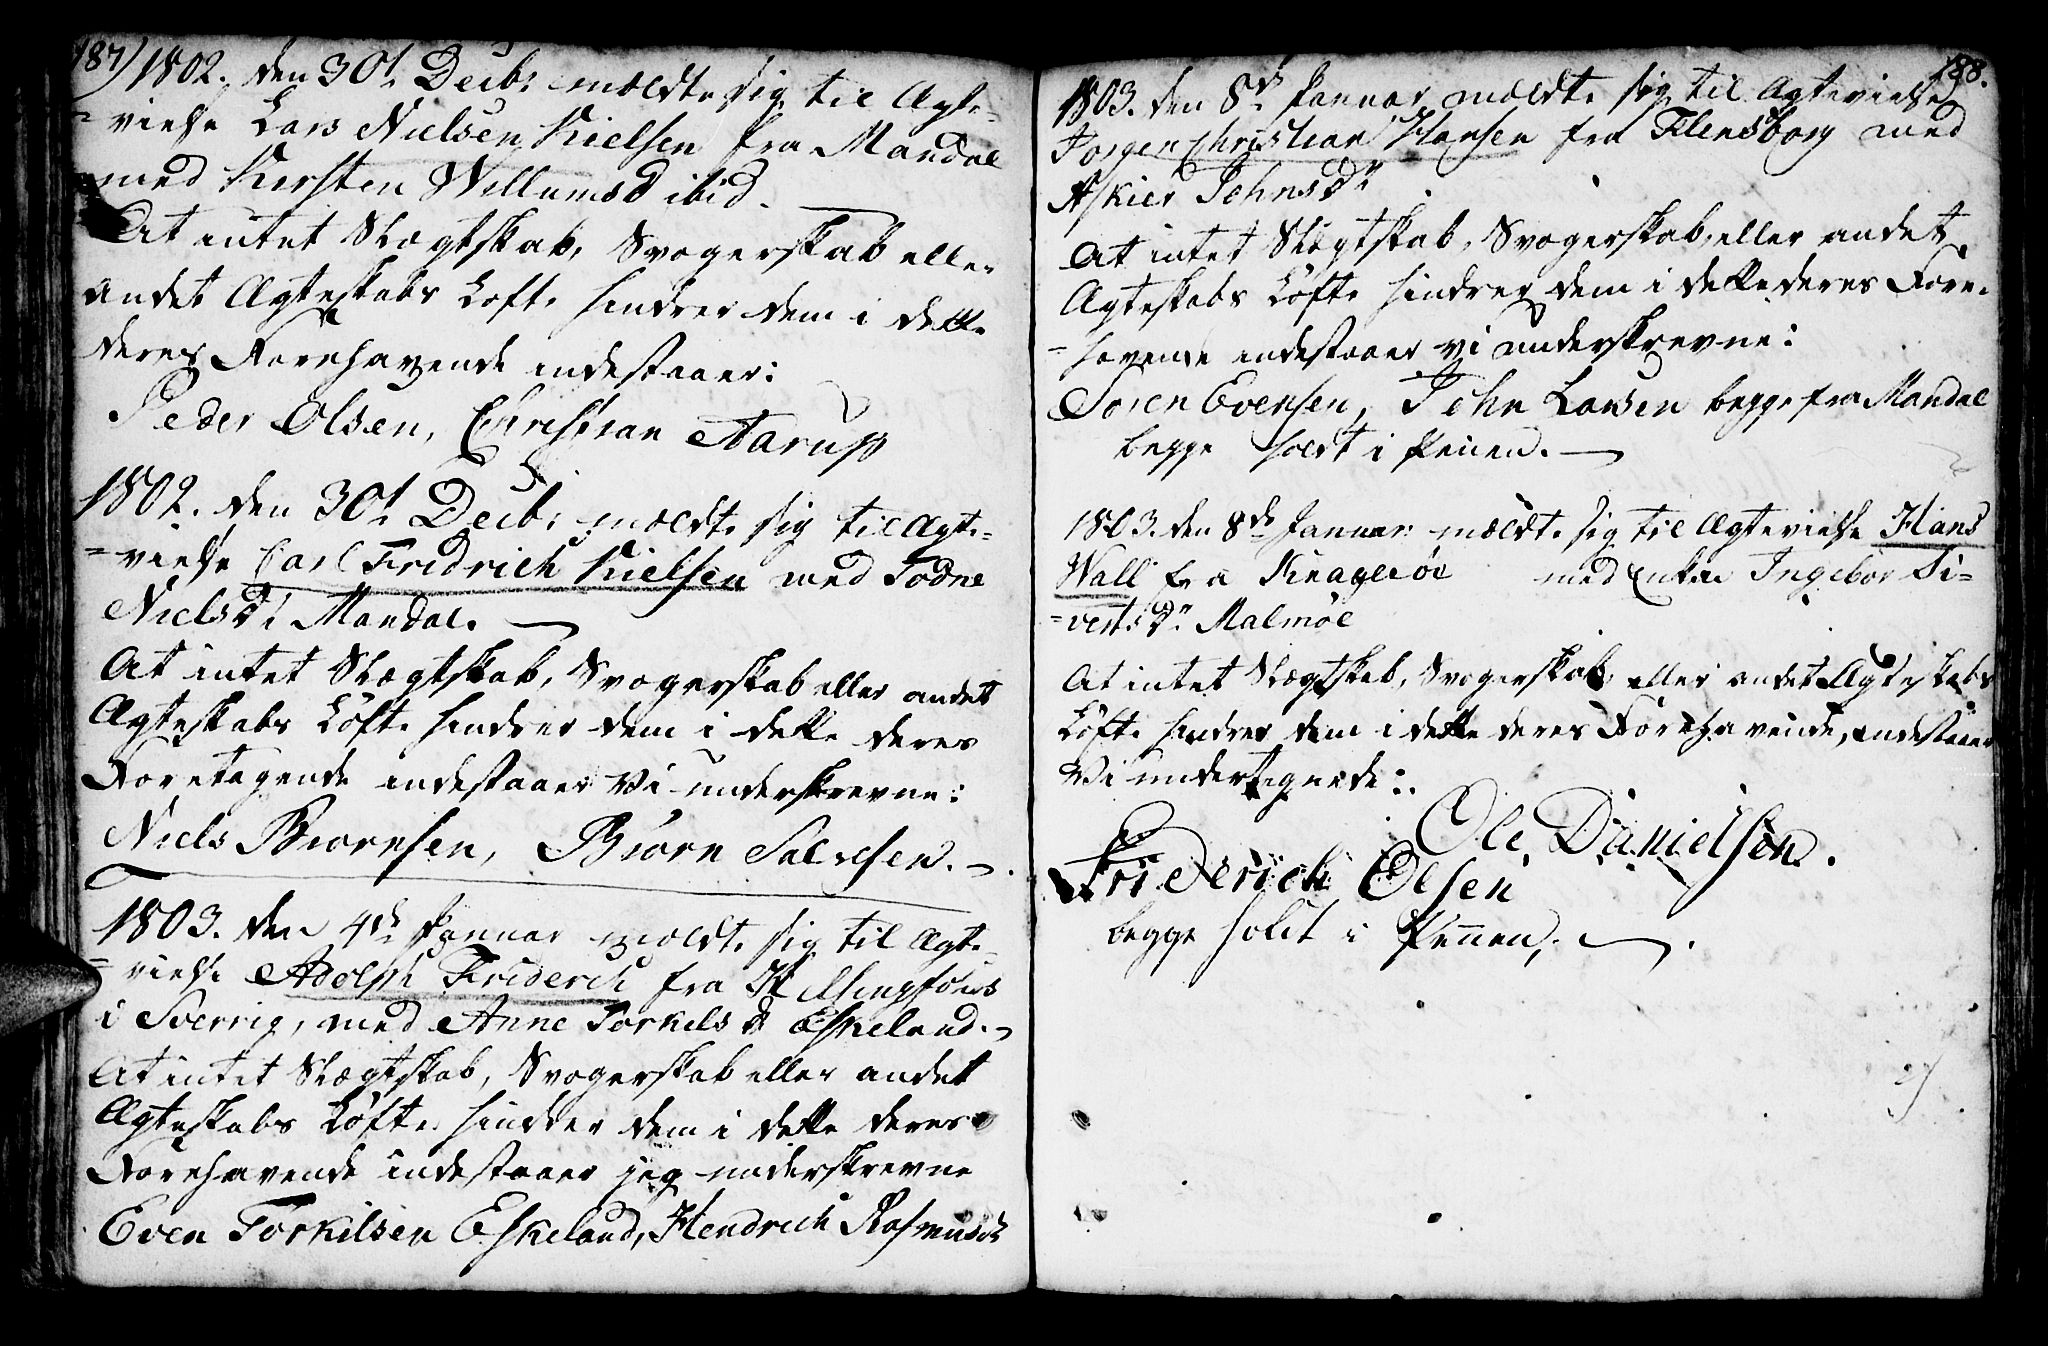 187)
1802. den 30t Decbr mældte sig til Ægte-
=vielse Lars Nielsen Nielsen fra Mandal
med Kirsten Willumsd ibid.
At intet Slægtskab, Svogerskab eller
andet Ægteskabs Løfte hindrer dem i dette
deres Forehavende indestaaer:
Peder Olsen, Christian Aarup
1802. den 30t Decbr mældte sig til Ægte-
=vielse Carl Fredrich Nielsen med Todne
Nielsd. Mandal.
At intet Slægtskab, Svogerskab eller andet
Ægteskabs Løfte hindrer dem i dette deres
Foretagende indestaaer Vi underskrevne:
Niels Biørnsen, Biørn Salvesen.
1803. den 4de Januar mældte sig til Ægte-
=vielse Adolph Friderich fra Helsingfors
i Sverrig, med Anne Torkelsd Eskeland.
At intet Slægtskab, Svogerskab eller andet
Ægteskabs Løfte hindrer dem i dette deres
Forehavende indestaaer jeg underskrevne
Even Torkilsen Eskeland, Hendrich Rasmusen
188.
1803. den 8de Januar mældte sig til Ægtevielse
Jørgen Christian Hansen fra Flensborg med
Johnsdr
At intet Slægtskab, Svogerskab, eller andet
Ægteskabs Løfte hindrer dem i dette deres Fore-
=havende indestaaer vi underskrevne:
Søren Evensen, John Larsen begge fra Mandal
begge holdt i Pennen.
1803. den 8de Januar mældte sig til Ægtevielse Hans
Wall fra Kragerøe med Enken Ingebor Si=
=verts Dr Malmøe
At intet Slægtskab, Svogerskab, eller andet Ægteskabs
Løfte hindrer dem i dette deres Forehavende, indestaaer
Vi undertegnede:
Ole Danielsøn.
Friderich Olsen
begge holdt i Pennen,